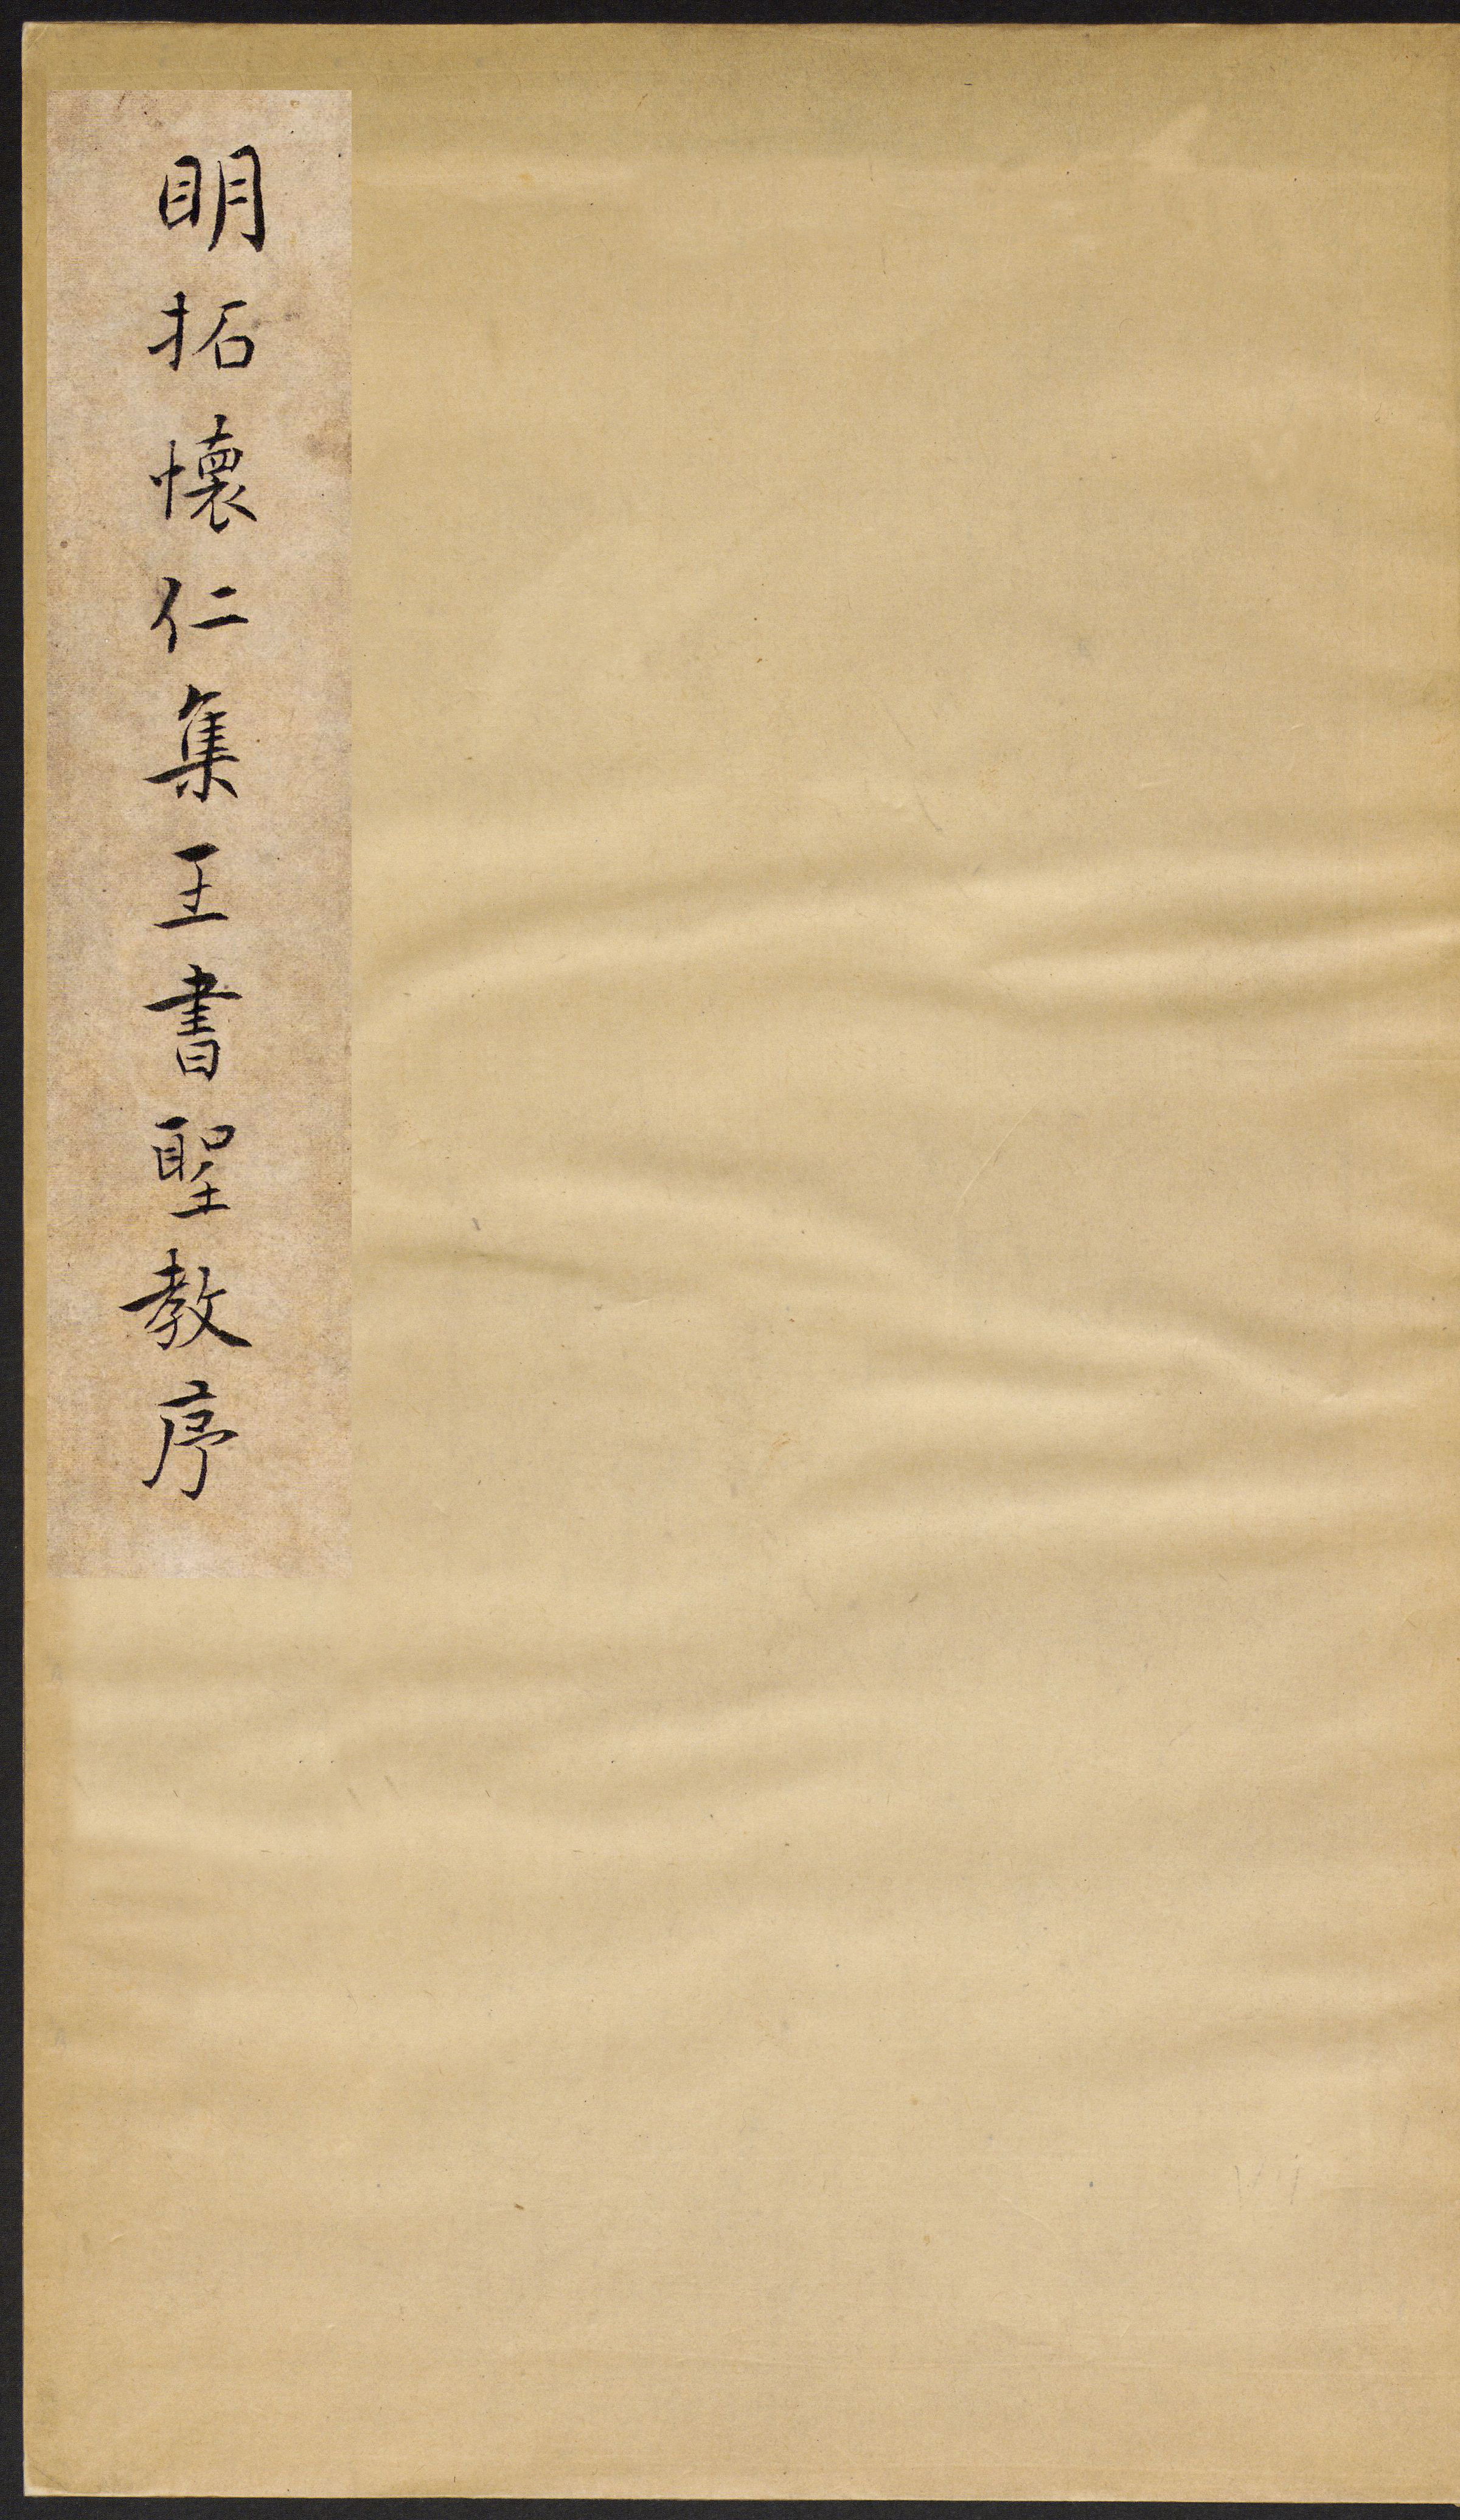 明拓懷仁集王書聖教序